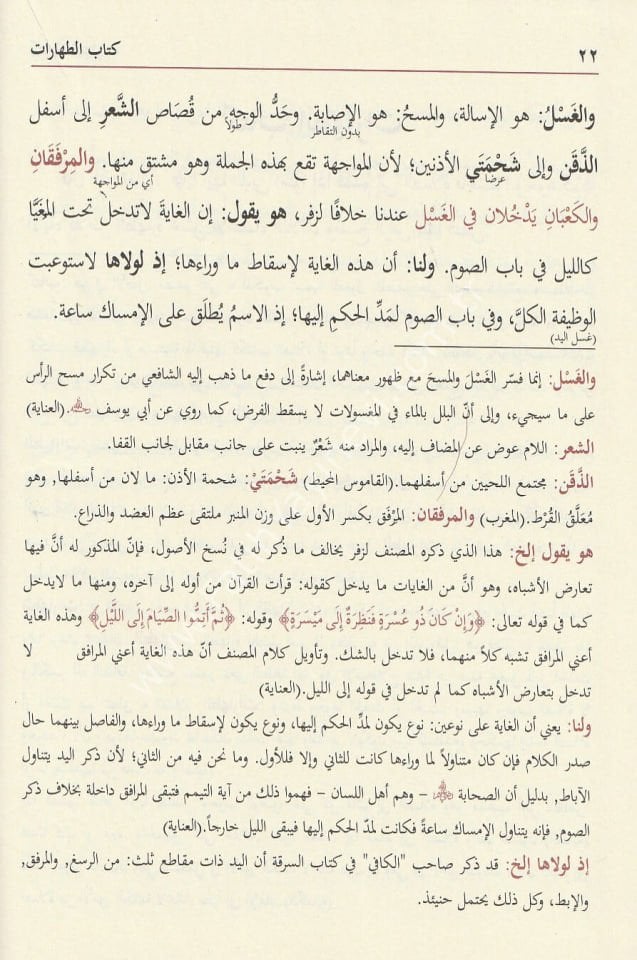 ٢٢ كتاب الطهارات
والغَسْلُ: هو الإسالة، والمسحُ: هو الإصابة. وحَدُّ الوجهِ من قُصَاص الشَّعرِ إلى أسفل
بدون التقاطر طولاً
الذَّقَن وإلى شَحْمَتَي الأذنين؛ لأن المواجهة تقع بهذه الجملة وهو مشتق منها. والمِرْفَقَانِ
عرضاً أي من المواجهة
والكَعْبَانِ يَدْخُلان في الغَسْل عندنا خلافًا لزفر، هو يقول: إن الغايةَ لاتدخل تحت المغَيَّا
كالليل في باب الصوم. ولنا: أن هذه الغاية لإسقاط ما وراءها؛ إذ لولاها لاستوعبت
الوظيفة الكلَّ، وفي باب الصوم لمَدِّ الحكمِ إليها؛ إذ الاسمُ يُطلَق على الإمساك ساعة.
(غسل اليد)
والغَسْل: إنما فسّر الغَسْلَ والمسحَ مع ظهور معناهما، إشارةً إلى دفع ما ذهب إليه الشافعي من تكرار مسح الرأس
على ما سيجيء، وإلى أنّ البلل بالماء في المغسولات لا يسقط الفرض، كما روي عن أبي يوسف .(العناية)
الشعر: اللام عوض عن المضاف إليه، والمراد منه شَعْرٌ ينبت على جانب مقابل لجانب القفا.
الذَّقَن: مجتمع اللحيين من أسفلهما.(القاموس المحيط) شَحْمَتَيْ: شحمة الأذن: ما لان من أسفلها, وهو
مُعَلَّق القُرْط.(المغرب) والمرفقان: المِرْفَق بكسر الأول على وزن المنبر ملتقى عظم العضد والذراع.
هو يقول إلخ: هذا الذي ذكره المصنف لزفر يخالف ما ذُكر له في نُسخ الأصول، فإنّ المذكور له أنَّ فيها
تعارض الأشباه، وهو أنَّ من الغايات ما يدخل كقوله: قرأت القرآن من أوله إلى آخره، ومنها ما لايدخل
كما في قوله تعالى: ﴿وَإِنْ كَانَ ذُو عُسْرَةٍ فَنَظِرَةٌ إِلَى مَيْسَرَةٍ﴾ وقوله: ﴿ثُمَّ أَتِمُّوا الصِّيَامَ إِلَى اللَّيْلِ﴾ وهذه الغاية
أعني المرافق تشبه كلاً منهما، فلا تدخل بالشك. وتأويل كلام المصنف أنّ هذه الغاية أعني المرافق لا
تدخل بتعارض الأشباه كما لم تدخل في قوله إلى الليل.(العناية)
ولنا: يعني أن الغاية على نوعين: نوع يكون لمدِّ الحكم إليها، ونوع يكون لإسقاط ما وراءها، والفاصل بينهما حال
صدر الكلام فإن كان متناولاً لما وراءها كانت للثاني وإلا فللأول. وما نحن فيه من الثاني؛ لأن ذكر اليد يتناول
الآباط, بدليل أن الصحابة - وهم أهل اللسان - فهموا ذلك من آية التيمم فتبقى المرافق داخلة بخلاف ذكر
الصوم, فإنه يتناول الإمساك ساعةً فكانت لمدّ الحكم إليها فيبقى الليل خارجاً.(العناية)
إذ لولاها إلخ: قد ذكر صاحب "الكافي" في كتاب السرقة أن اليد ذات مقاطع ثلث: من الرسغ, والمرفق,
والإبط, وكل ذلك يحتمل حنيئذ.